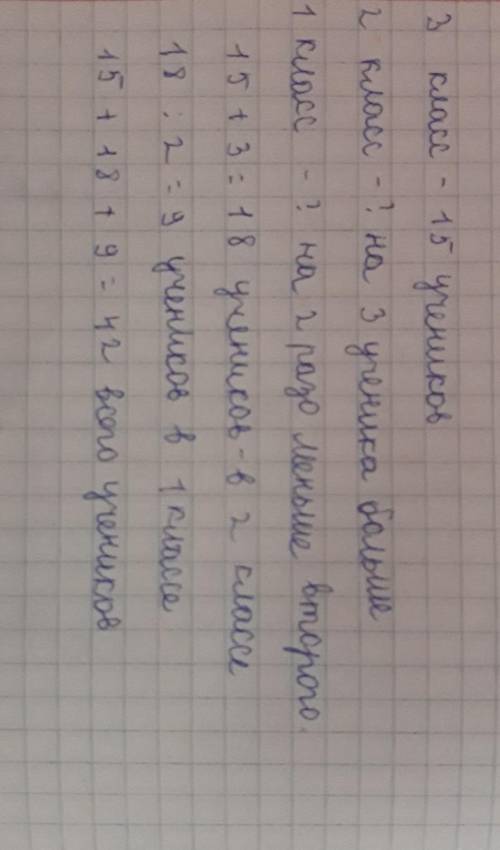 3 класс - 15 учеников
2 класс - ? на 3 ученика больше
1 класс - ? на 2 разо меньше второго.
15 + 3 = 18 учеников - в 2 классе
18 : 2 = 9 учеников в 1 классе
15 + 18 + 9 = 42 всего учеников